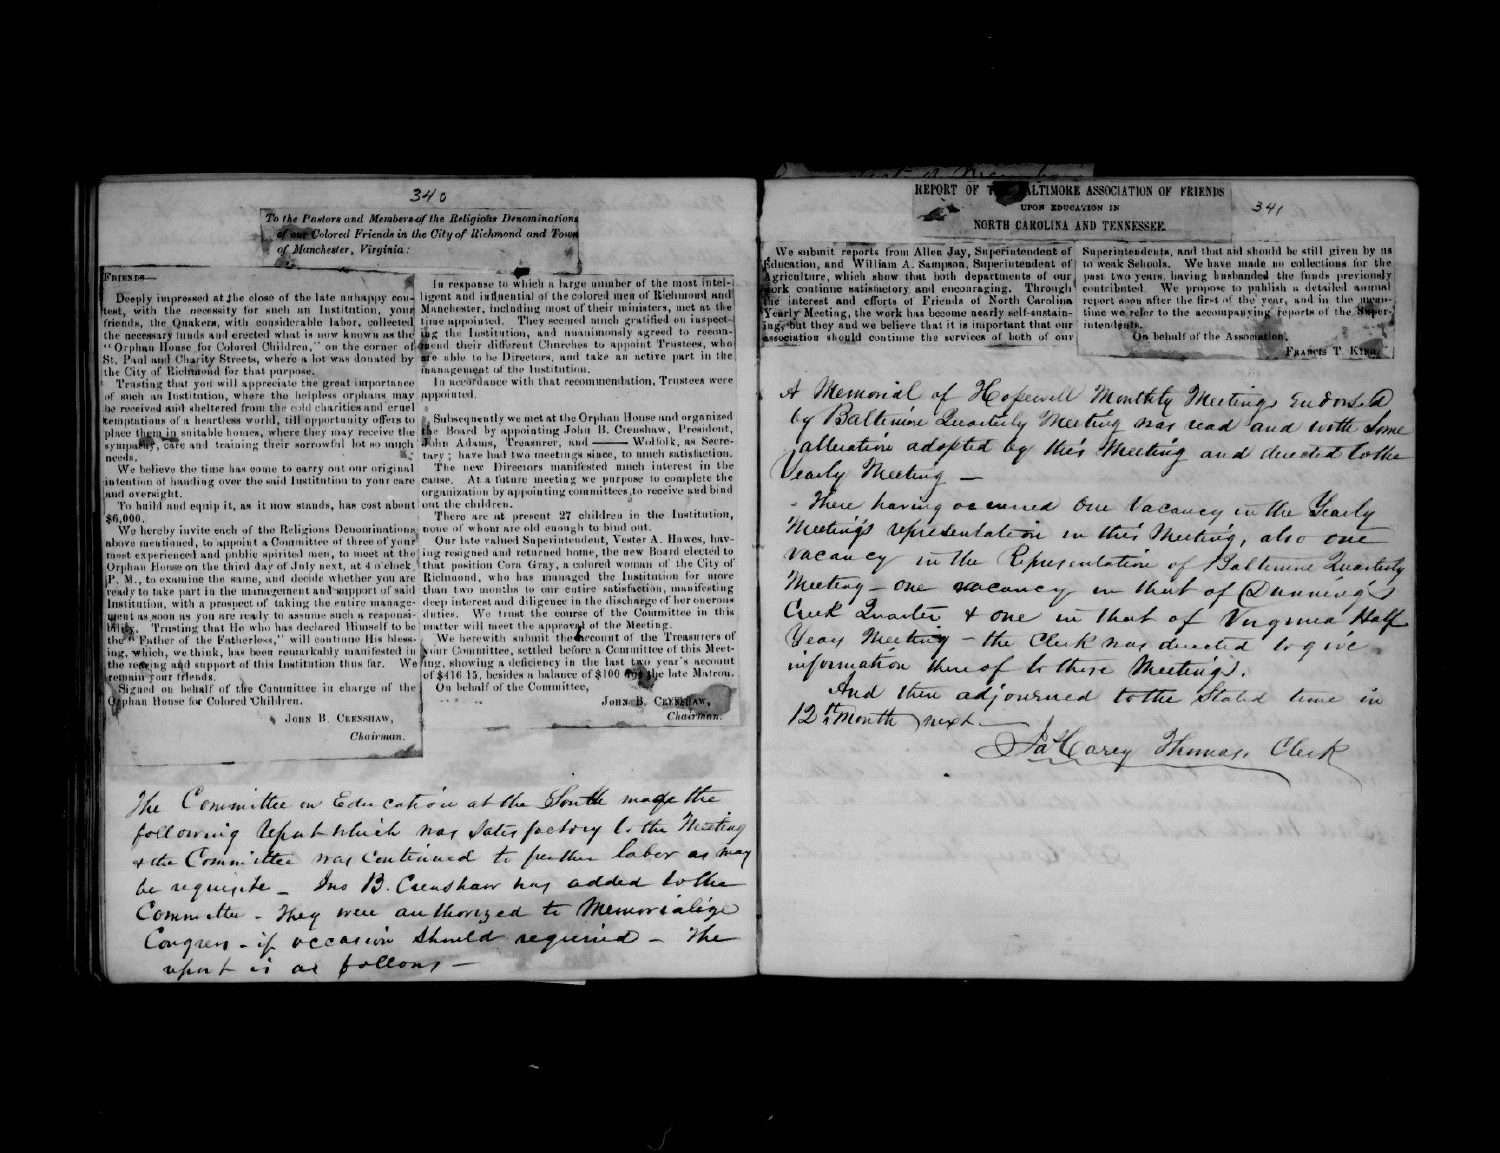 340
To the Pastors and Members of the Religious Denominations
of our Colored Friends in the City of Richmond and Town
of Manchester, Virginia:
FRIENDS—
Deeply impressed at the close of the late unhappy con-
test, with the necessity for such an Institution, your
friends, the Quakers, with considerable labor, collected
the necessary funds and erected what is now known as the
"Orphan House for Colored Children," on the corner of
St. Paul and Charity Streets, where a lot was donated by
the City of Richmond for that purpose.
Trusting that you will appreciate the great importance
of such an Institution, where the helpless orphans may
be received and sheltered from the cold charities and cruel
temptations of a heartless world, till opportunity offers to
place them in suitable homes, where they may receive the
sympathy, care and training their sorrowful lot so much
needs.
We believe the time has come to carry out our original
intention of handing over the said Institution to your care
and oversight.
To build and equip it, as it now stands, has cost about
$6,000.
We hereby invite each of the Religious Denominations
above mentioned, to appoint a Committee of three of your
most experienced and public spirited men, to meet at the
Orphan House on the third day of July next, at 4 o'clock
P. M., to examine the same, and decide whether you are
ready to take part in the management and support of said
Institution, with a prospect of taking the entire manage-
ment as soon as you are ready to assume such a responsi-
bility. Trusting that He who has declared Himself to be
the "Father of the Fatherless," will continue His bless-
ing, which, we think, has been remarkably manifested in
the rearing and support of this Institution thus far. We
remain your friends.
Signed on behalf of the Committee in charge of the
Orphan House for Colored Children.
JOHN B. CRENSHAW,
Chairman.
In response to which a large number of the most intel-
ligent and influential of the colored men of Richmond and
Manchester, including most of their ministers, met at the
time appointed. They seemed much gratified on inspect-
ing the Institution, and unanimously agreed to recom-
mend their different Churches to appoint Trustees, who
are able to be Directors, and take an active part in the
management of the Institution.
In accordance with that recommendation, Trustees were
appointed.
Subsequently we met at the Orphan House and organized
the Board by appointing John B. Crenshaw, President,
John Adams, Treasurer, and —— Wolfolk, as Secre-
tary; have had two meetings since, to much satisfaction.
The new Directors manifested much interest in the
cause. At a future meeting we purpose to complete the
organization by appointing committees to receive and bind
out the children.
There are at present 27 children in the Institution,
none of whom are old enough to bind out.
Our late valued Superintendent, Vester A. Hawes, hav-
ing resigned and returned home, the new Board elected to
that position Cora Gray, a colored woman of the City of
Richmond, who has managed the Institution for more
than two months to our entire satisfaction, manifesting
deep interest and diligence in the discharge of her onerous
duties. We trust the course of the Committee in this
matter will meet the approval of the Meeting.
We herewith submit the account of the Treasurers of
your Committee, settled before a Committee of this Meet-
ing, showing a deficiency in the last two year's account
of $416 15, besides a balance of $100 the late Matron.
On behalf of the Committee,
JOHN B. CRENSHAW,
Chairman.
The Committee on Education at the South made the
following report which was satisfactory to the Meeting
& the Committee was continued to further labor as may
be requisite — Jno B. Crenshaw was added to the
Committee - They were authorized to Memorialize
Congress - if occasion should required — The
report is as follows —
REPORT OF THE BALTIMORE ASSOCIATION OF FRIENDS
UPON EDUCATION IN
NORTH CAROLINA AND TENNESSEE.
341
We submit reports from Allen Jay, Superintendent of
Education, and William A. Sampson, Superintendent of
Agriculture, which show that both departments of our
work continue satisfactory and encouraging. Through
the interest and efforts of Friends of North Carolina
Yearly Meeting, the work has become nearly self-sustain-
ing, but they and we believe that it is important that our
association should continue the services of both of our
Superintendents, and that aid should be still given by us
to weak Schools. We have made no collections for the
past two years, having husbanded the funds previously
contributed. We propose to publish a detailed annual
report soon after the first of the year, and in the mean-
time we refer to the accompanying reports of the Super-
intendents.
On behalf of the Association,
FRANCIS T. KING.
A Memorial of Hopewell Monthly Meetings Endorsed
by Baltimore Quarterly Meeting was read and with some
alteration adopted by this Meeting and directed to the
Yearly Meeting —
- There having occurred one Vacancy in the Yearly
Meeting's representation in this Meeting, also one
vacancy in the Representation of Baltimore Quarterly
Meeting - one vacancy in that of Dunning's
Creek Quarter & one in that of Virginia Half
Years Meeting - the Clerk was directed to give
information thereof to these Meetings.
And then adjourned to the Stated time in
12th Month next —
Jas Carey Thomas, Clerk